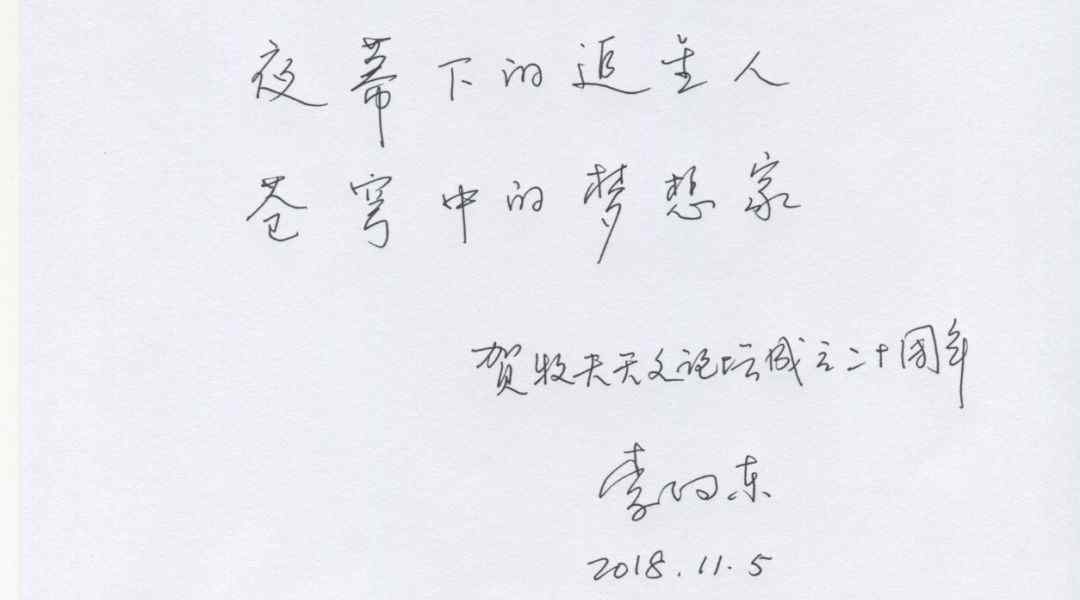 夜幕下的追星人
苍穹中的梦想家
贺牧夫天文论坛成立二十周年
李向东
2018.11.5